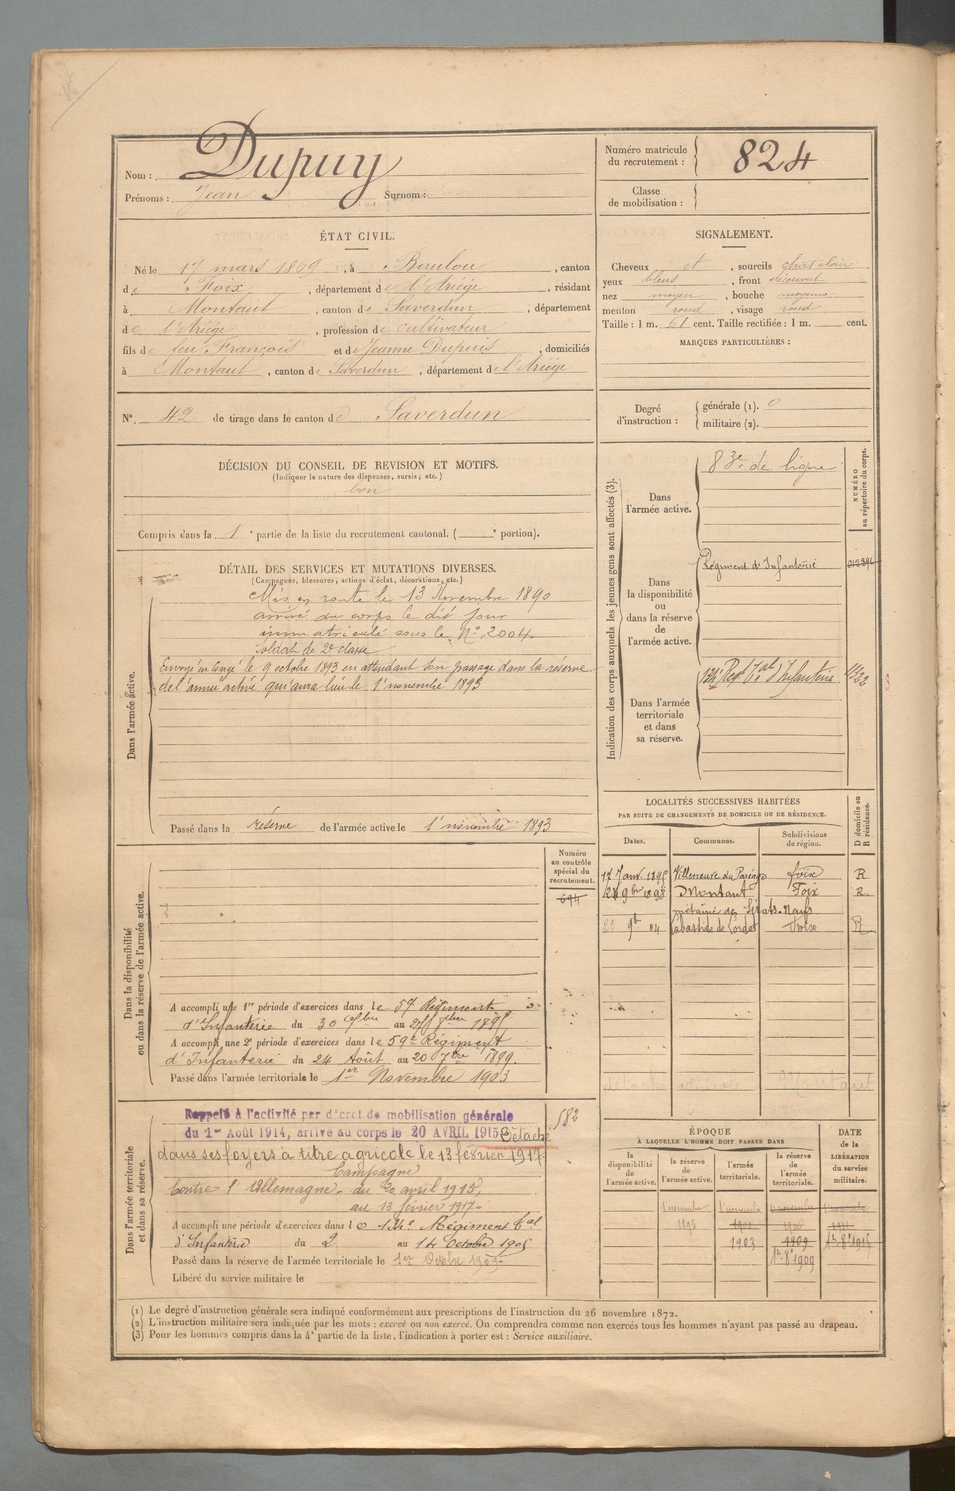 Nom : Dupuy
Prénoms : Jean Surnom :
Numéro matricule
du recrutement : 824
Classe
de mobilisation :
ÉTAT CIVIL.
Né le 17 mars 1869, à Baulou, canton
de Foix, département de l'Ariège, résidant
à Montaut, canton de Saverdun, département
de l'Ariège, profession de cultivateur
fils de feu François et de Jeanne Dupuis, domiciliés
à Montaut, canton de Saverdun, département de l'Ariège
N° 42 de tirage dans le canton de Saverdun
SIGNALEMENT.
Cheveux et, sourcils chat clair
yeux bleus, front découvert
nez moyen, bouche moyenne
menton rond, visage rond
Taille : 1 m. 61 cent. Taille rectifiée : 1 m. cent.
MARQUES PARTICULIÈRES :
Degré
d'instruction :
générale (1). 0
militaire (2).
DÉCISION DU CONSEIL DE REVISION ET MOTIFS.
(Indiquer la nature des dispenses, sursis, etc.)
bon
Compris dans la 1e partie de la liste du recrutement cantonal. ( e portion).
DÉTAIL DES SERVICES ET MUTATIONS DIVERSES.
(Campagnes, blessures, actions d'éclat, décorations, etc.)
Dans l'armée active.
Mis en route le 13 Novembre 1890
arrivé au corps le dit jour
immatriculé sous le N° 2004.
Soldat de 2e classe
Envoyé en congé le 9 octobre 1893 en attendant son passage dans la réserve
de l'armée active qui aura lieu le 1er novembre 1893
Passé dans la réserve de l'armée active le 1er novembre 1893
Indication des corps auxquels les jeunes gens sont affectés (3).
NUMÉRO
au répertoire du corps.
Dans
l'armée active.
83e de ligne
Dans
la disponibilité
ou
dans la réserve
de
l'armée active.
Régiment d'Infanterie
Dans l'armée
territoriale
et dans
sa réserve.
134e Reg t Ter al d'Infanterie
LOCALITÉS SUCCESSIVES HABITÉES
PAR SUITE DE CHANGEMENTS DE DOMICILE OU DE RÉSIDENCE.
Dates.
Communes.
Subdivisions
de région.
D domicile ou
R résidence.
17 Janv 1895 Villeneuve du Paréage Foix R
9bre 1898 Montaut Foix R.
20 9b 04 Labastide de Lordat Foix R
Dans la disponibilité
ou dans la réserve de l'armée active.
Numéro
au contrôle
spécial du
recrutement.
694
A accompli une 1re période d'exercices dans le 59 Régiment
d'Infanterie du 30
A accompli une 2e période d'exercices dans le 59e Régiment
d'Infanterie du 24 Août au 20 7bre 1899.
Passé dans l'armée territoriale le 1er Novembre 1903
Dans l'armée territoriale
et dans sa réserve.
Rappelé à l'activité par décret de mobilisation générale
du 1er Août 1914, arrivé au corps le 20 AVRIL 1915 Détaché
dans ses foyers à titre agricole le 13 février 1917.
Campagne
Contre l'Allemagne du 20 avril 1915,
au 13 février 1917-
582
A accompli une période d'exercices dans le 134e Régiment t al
d'Infanterie du 2 au 14 Octobre 1905
Passé dans la réserve de l'armée territoriale le 1er Octobre 1909
Libéré du service militaire le
ÉPOQUE
À LAQUELLE L'HOMME DOIT PASSER DANS
la
disponibilité
de
l'armée active.
la réserve
de
l'armée active.
l'armée
territoriale.
la réserve
de
l'armée
territoriale.
DATE
de la
LIBÉRATION
du service
militaire.
1 novembre 1893
1 novembre 1903
1909
1er 8e 1909
(1) Le degré d'instruction générale sera indiqué conformément aux prescriptions de l'instruction du 26 novembre 1872.
(2) L'instruction militaire sera indiquée par les mots : exercé ou non exercé. On comprendra comme non exercés tous les hommes n'ayant pas passé au drapeau.
(3) Pour les hommes compris dans la 4e partie de la liste, l'indication à porter est : Service auxiliaire.